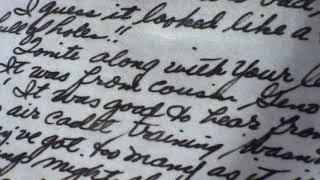 I guess it looked like a
full of holes."
Tonite along with your le
It was from cousin, Geno
It was good to hear from
air cadet training, wasn
've got too many as it i
might